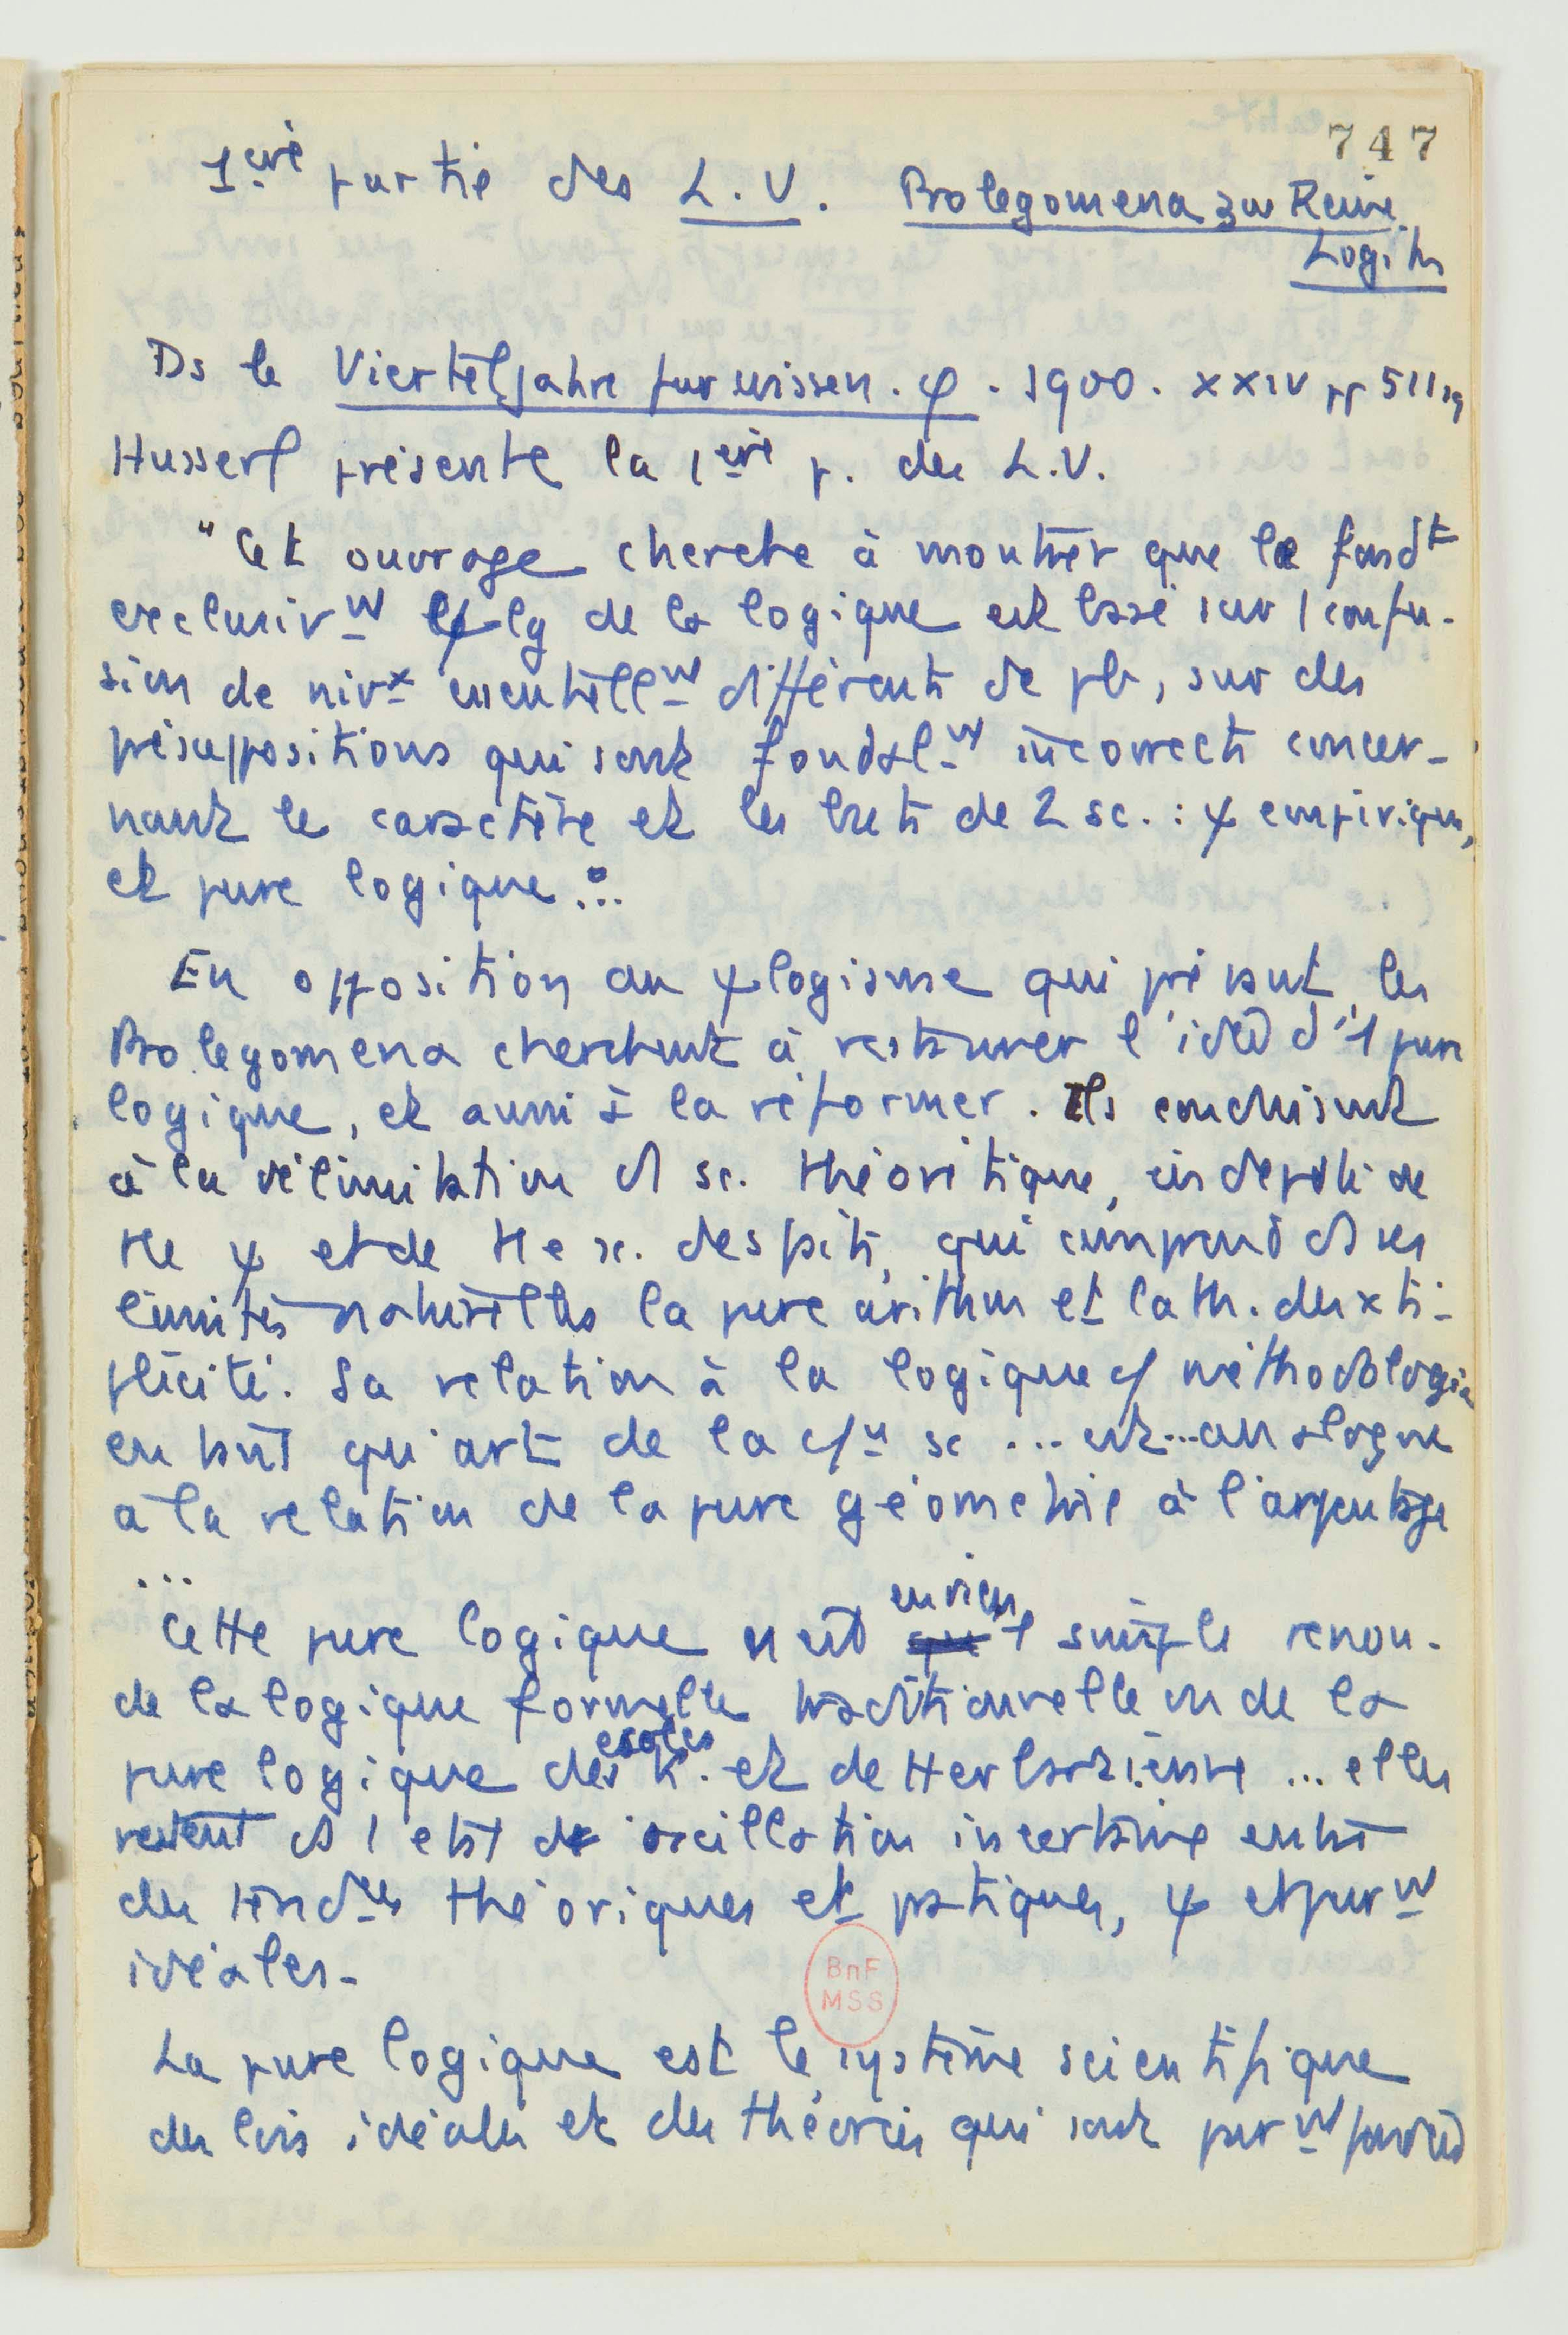 747
1ère partie des L.V. Prolegomena zur Reine
Logik
Ds le Vierteljahre fur wissen. φ. 1900. XXIV pp 511 sq
Husserl présente la 1ère p. des L.V.
"Cet ouvrage cherche à montrer que le fondt
exclusivW ψ lg de la logique est basé sur 1 confu-
sion de nivx essentiellW différents de pb, sur des
présuppositions qui sont fondalW incorrects concer-
nant le caractère et les buts de 2 sc. : ψ empirique,
et pure logique...
En opposition au ψlogisme qui prévaut, les
Prolegomena cherchent à restaurer l'idée d'1 pure
logique, et aussi à la réformer. Ils conduisent
à la délimitation d'1 sc. théorétique, indepdte de
tte ψ et de tte sc. des faits, qui comprend ds ses
limites naturelles la pure arithm et la th. des xti-
plicité. Sa relation à la logique c/ méthodologie
en tant qu'art de la c/n sc ... est ... analogue
à la relation de la pure géométrie à l'arpentage
...
Cette pure logique n'est en rien 1 simple renou-
de la logique formelle traditionnelle ou de la
pure logique des écoles k. et de Herbartienne ... elles
restent ds 1 état de oscillation incertaine entre
des tendces théoriques et pratiques, ψ et purW
idéales.
BnF
MSS
La pure logique est le système scientifique
des lois idéales et des théories qui sont purW fondées